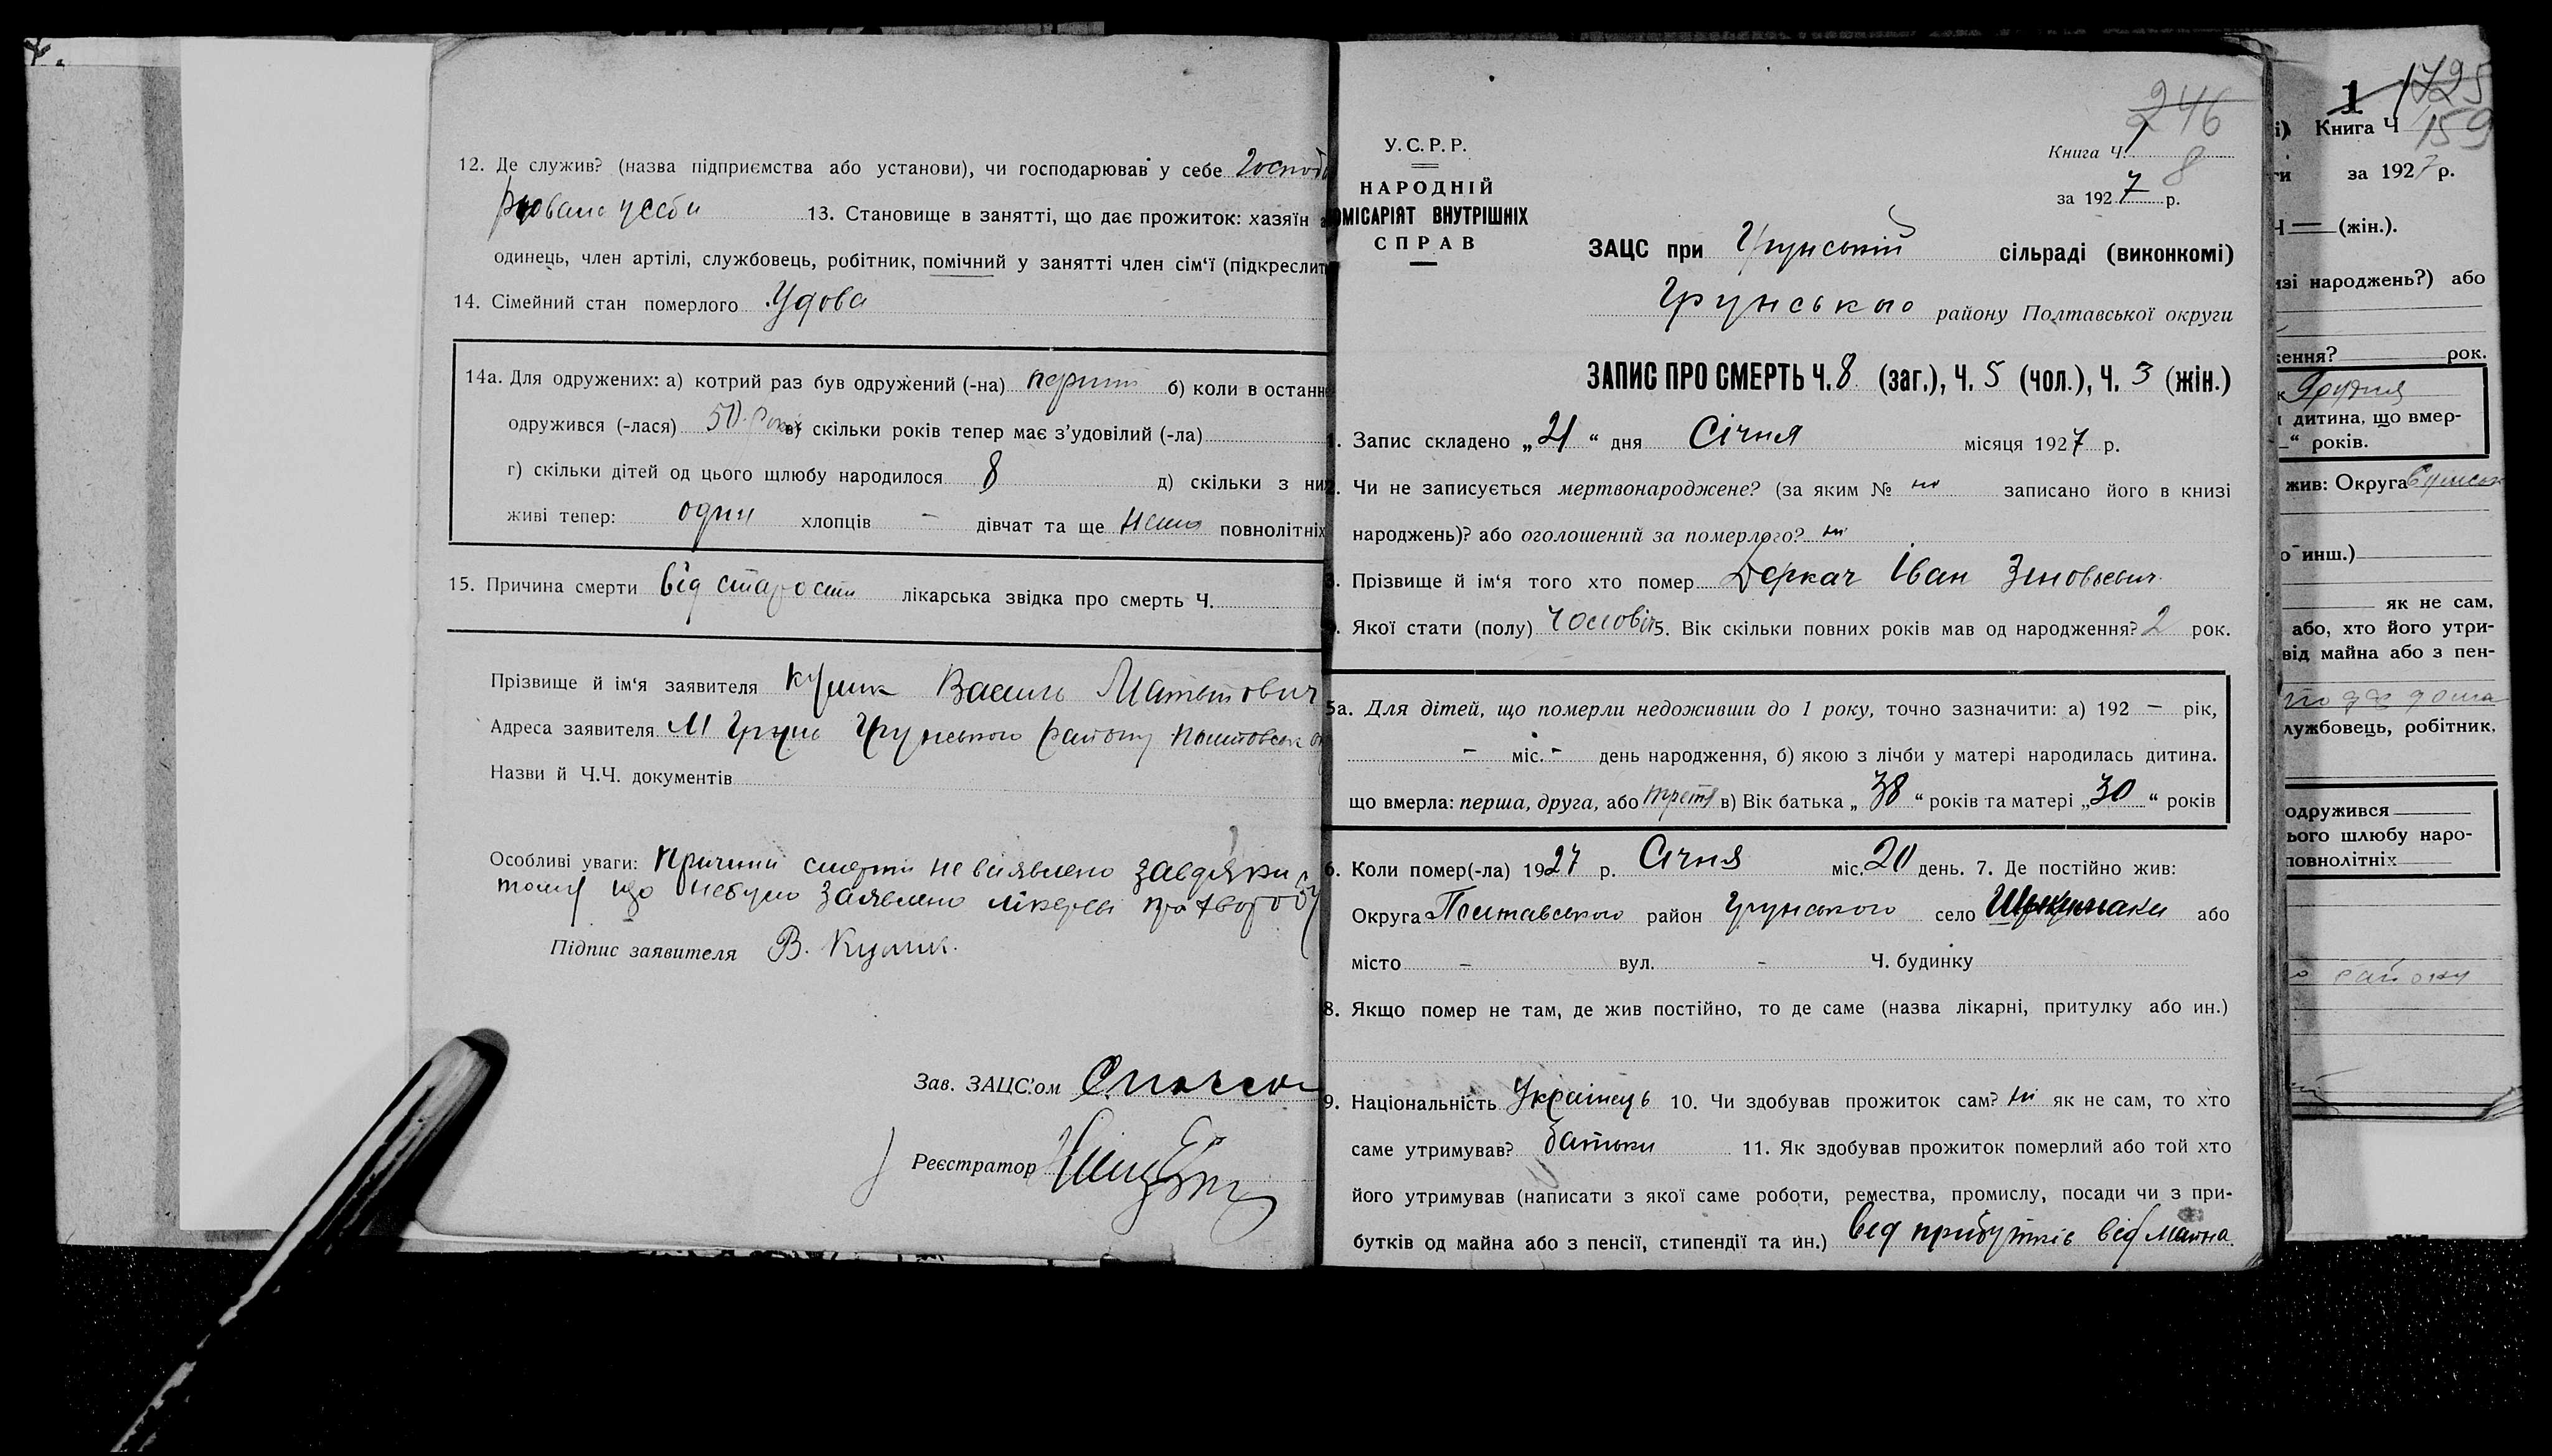 12. Де служив? (назва підприємства або установи), чи господарював у себе Господа
рювала у себи 13. Становище в занятті, що дає прожиток: хазяїн
одинець, член артілі, службовець, робітник, помічний у занятті член сім'ї (підкреслит
14. Сімейний стан померлого Удова
14а. Для одружених: а) котрий раз був одружений (-на) перший б) коли в останн
одружився (-лася) 50 років в) скільки років тепер має з'удовілий (-ла)
г) скільки дітей од цього шлюбу народилося 8 д) скільки з ни
живі тепер: один хлопців – дівчат та ще нема повнолітніх
15. Причина смерти від старости лікарська звідка про смерть Ч.
Прізвище й ім'я заявителя Кулик Василь
Адреса заявителя М Грунь Грунського району
Назви й Ч.Ч. документів
Особливі уваги: Причини смерти не виявлено завдяки
тому що небуло заявлено лікареві про хворобу
Підпис заявителя В. Кулик.
Зав. ЗАЦС'ом
Реєстратор
У.С.Р.Р.
НАРОДНІЙ
ОМІСАРІЯТ ВНУТРІШНІХ
СПРАВ
246
Книга Ч. 1
8
за 1927 р.
ЗАЦС при Грунській сільраді (виконкомі)
Грунського району Полтавської округи
ЗАПИС ПРО СМЕРТЬ Ч. 8 (заг.), Ч. 5 (чол.), Ч. 3 (жін.)
1. Запис складено „21“ дня Січня місяця 1927 р.
2. Чи не записується мертвонароджене? (за яким № ні записано його в книзі
народжень)? або оголошений за померлого? ні
3. Прізвище й ім'я того хто помер Деркач Іван Зіновієвич
4. Якої стати (полу) Чоловіч 5. Вік скільки повних років мав од народження? 2 рок.
5а. Для дітей, що померли недоживши до 1 року, точно зазначити: а) 192 – рік,
– міс. – день народження, б) якою з лічби у матері народилась дитина.
що вмерла: перша, друга, або третя в) Вік батька „38“ років та матері „30“ років
6. Коли помер(-ла) 1927 р. Січня міс. 20 день. 7. Де постійно жив:
Округа Полтавського район Грунського село або
місто – вул. – Ч. будинку
8. Якщо помер не там, де жив постійно, то де саме (назва лікарні, притулку або ин.)
9. Національність Українець 10. Чи здобував прожиток сам? ні як не сам, то хто
саме утримував? Батьки 11. Як здобував прожиток померлий або той хто
його утримував (написати з якої саме роботи, ремества, промислу, посади чи з при-
бутків од майна або з пенсії, стипендії та ин.) від прибутків від майна
1
159
Книга Ч
за 1927 р.
— (жін.).
изі народжень?) або
ення? рок.
Грудня
дитина, що вмер-
“ років.
жив: Округа
о инш.)
як не сам,
або, хто його утри-
від майна або з пен-
лужбовець, робітник,
одружився
ього шлюбу наро-
повнолітніх
району